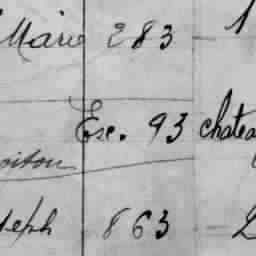 Marie 283 1
Exc. 93 chatea
oiton
seph 863 2